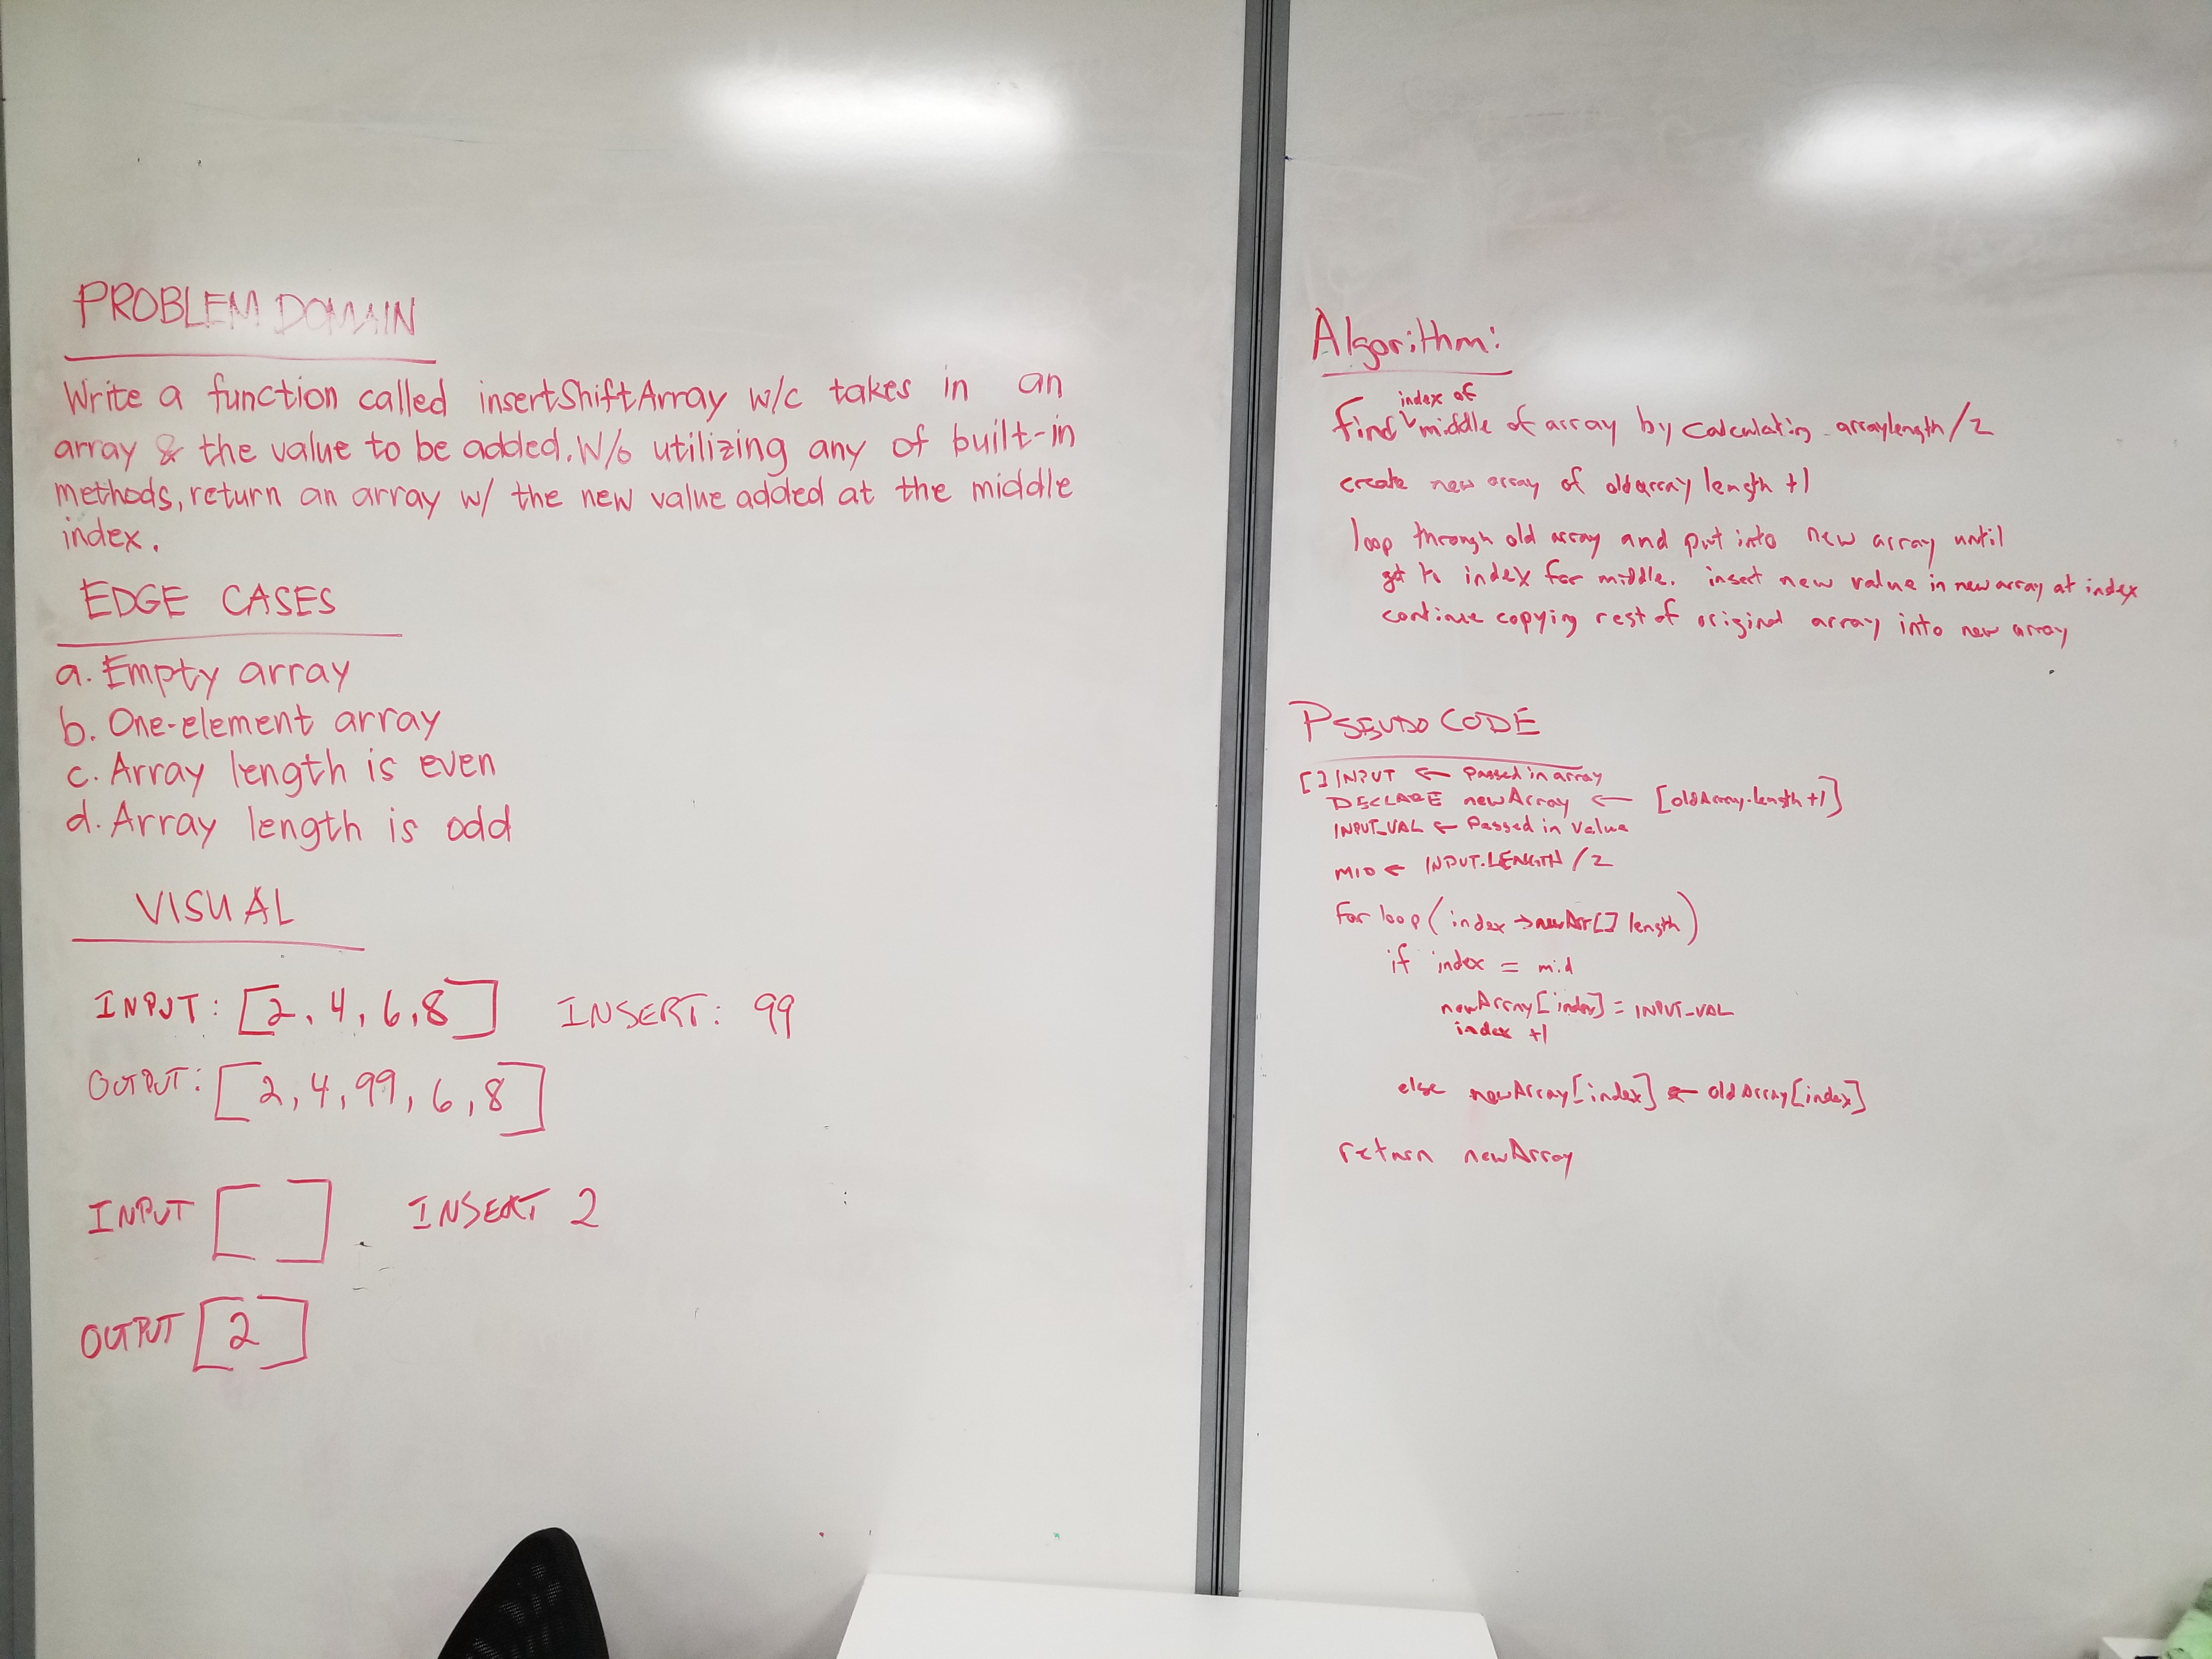 PROBLEM DOMAIN
Write a function called insertShiftArray w/c takes in an
array & the value to be added. W/o utilizing any of built-in
methods, return an array w/ the new value added at the middle
index.
EDGE CASES
a. Empty array
b. One-element array
c. Array length is even
d. Array length is odd
VISUAL
INPUT: [2, 4, 6, 8] INSERT: 99
OUTPUT: [2, 4, 99, 6, 8]
INPUT [ ] INSERT 2
OUTPUT [2]
Algorithm:
index of
find middle of array by calculating arraylength/2
create new array of old array length +1
loop through old array and put into new array until
get to index for middle. insert new value in new array at index
continue copying rest of original array into new array
PSEUDO CODE
[] INPUT ← Passed in array
DECLARE newArray ← [oldArray.length +1]
INPUT_VAL ← Passed in value
MID ← INPUT.LENGTH / 2
For loop (index → newArr[] length)
if index = mid
newArray[index] = INPUT_VAL
index +1
else newArray[index] ← oldArray[index]
return newArray